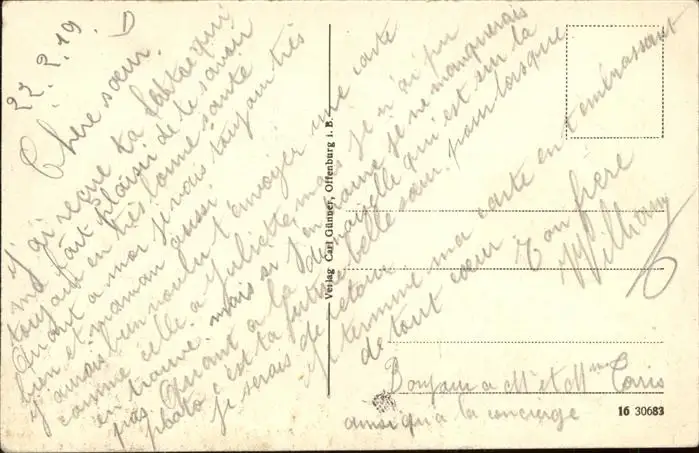 22.2.19. D
Chère sœur.
J'ai reçue ta carte qui
ma fait plaisir de te savoir
toujour en très bonne santé
Quant a moi je vais toujour très
bien et maman aussi.
J'aurais bien voulu t'envoyer une carte
comme celle a Juliette, mais je n'ai pu
en trouvé mais si j'en trouve je ne manquerais
pas. Quant a la demoiselle qui est sur la
photo c'est ta future belle sœur pour lorsque
je serais de retour
Je termine ma carte en t'embrassant
de tout cœur Ton frère
William
Bonjour a Mr et Mme Paris
ainsi qu'a la concierge
Verlag Carl Günner, Offenburg i. B.
16 30683